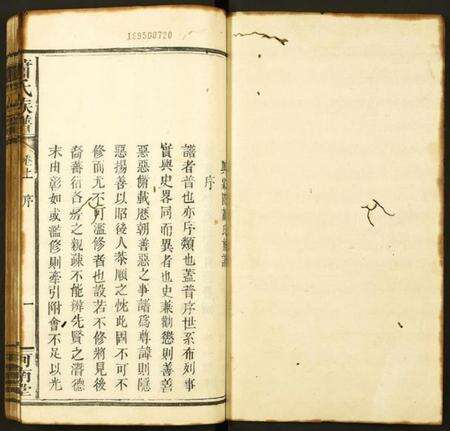 188500720
序
譜者普也亦序類也蓋普序世系布列事
實與史畧同而異者也史兼勸懲則善善
惡惡備載歷朝善惡之事譜爲尊諱則隱
惡揚善以昭後人恭順之忱此固不可不
修而尤不可濫修者也設若不修將見後
裔蕃衍各分之親疎不能辨先賢之潛德
末由彰如或濫修則牽引附會不足以光
氏族譜
卷上
序
一
河南堂